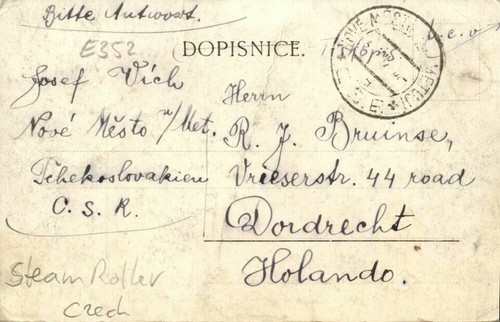 Bitte Antwort.
E352
DOPISNICE.
NOVÉ MĚSTO METUJÍ
Josef Vích
Nové Město n/Met.
Tschekoslovakien
C. S. R.
Herrn
R. J. Bruinse,
Vrieserstr. 44 rood
Dordrecht
Holando.
Steam Roller
Czech